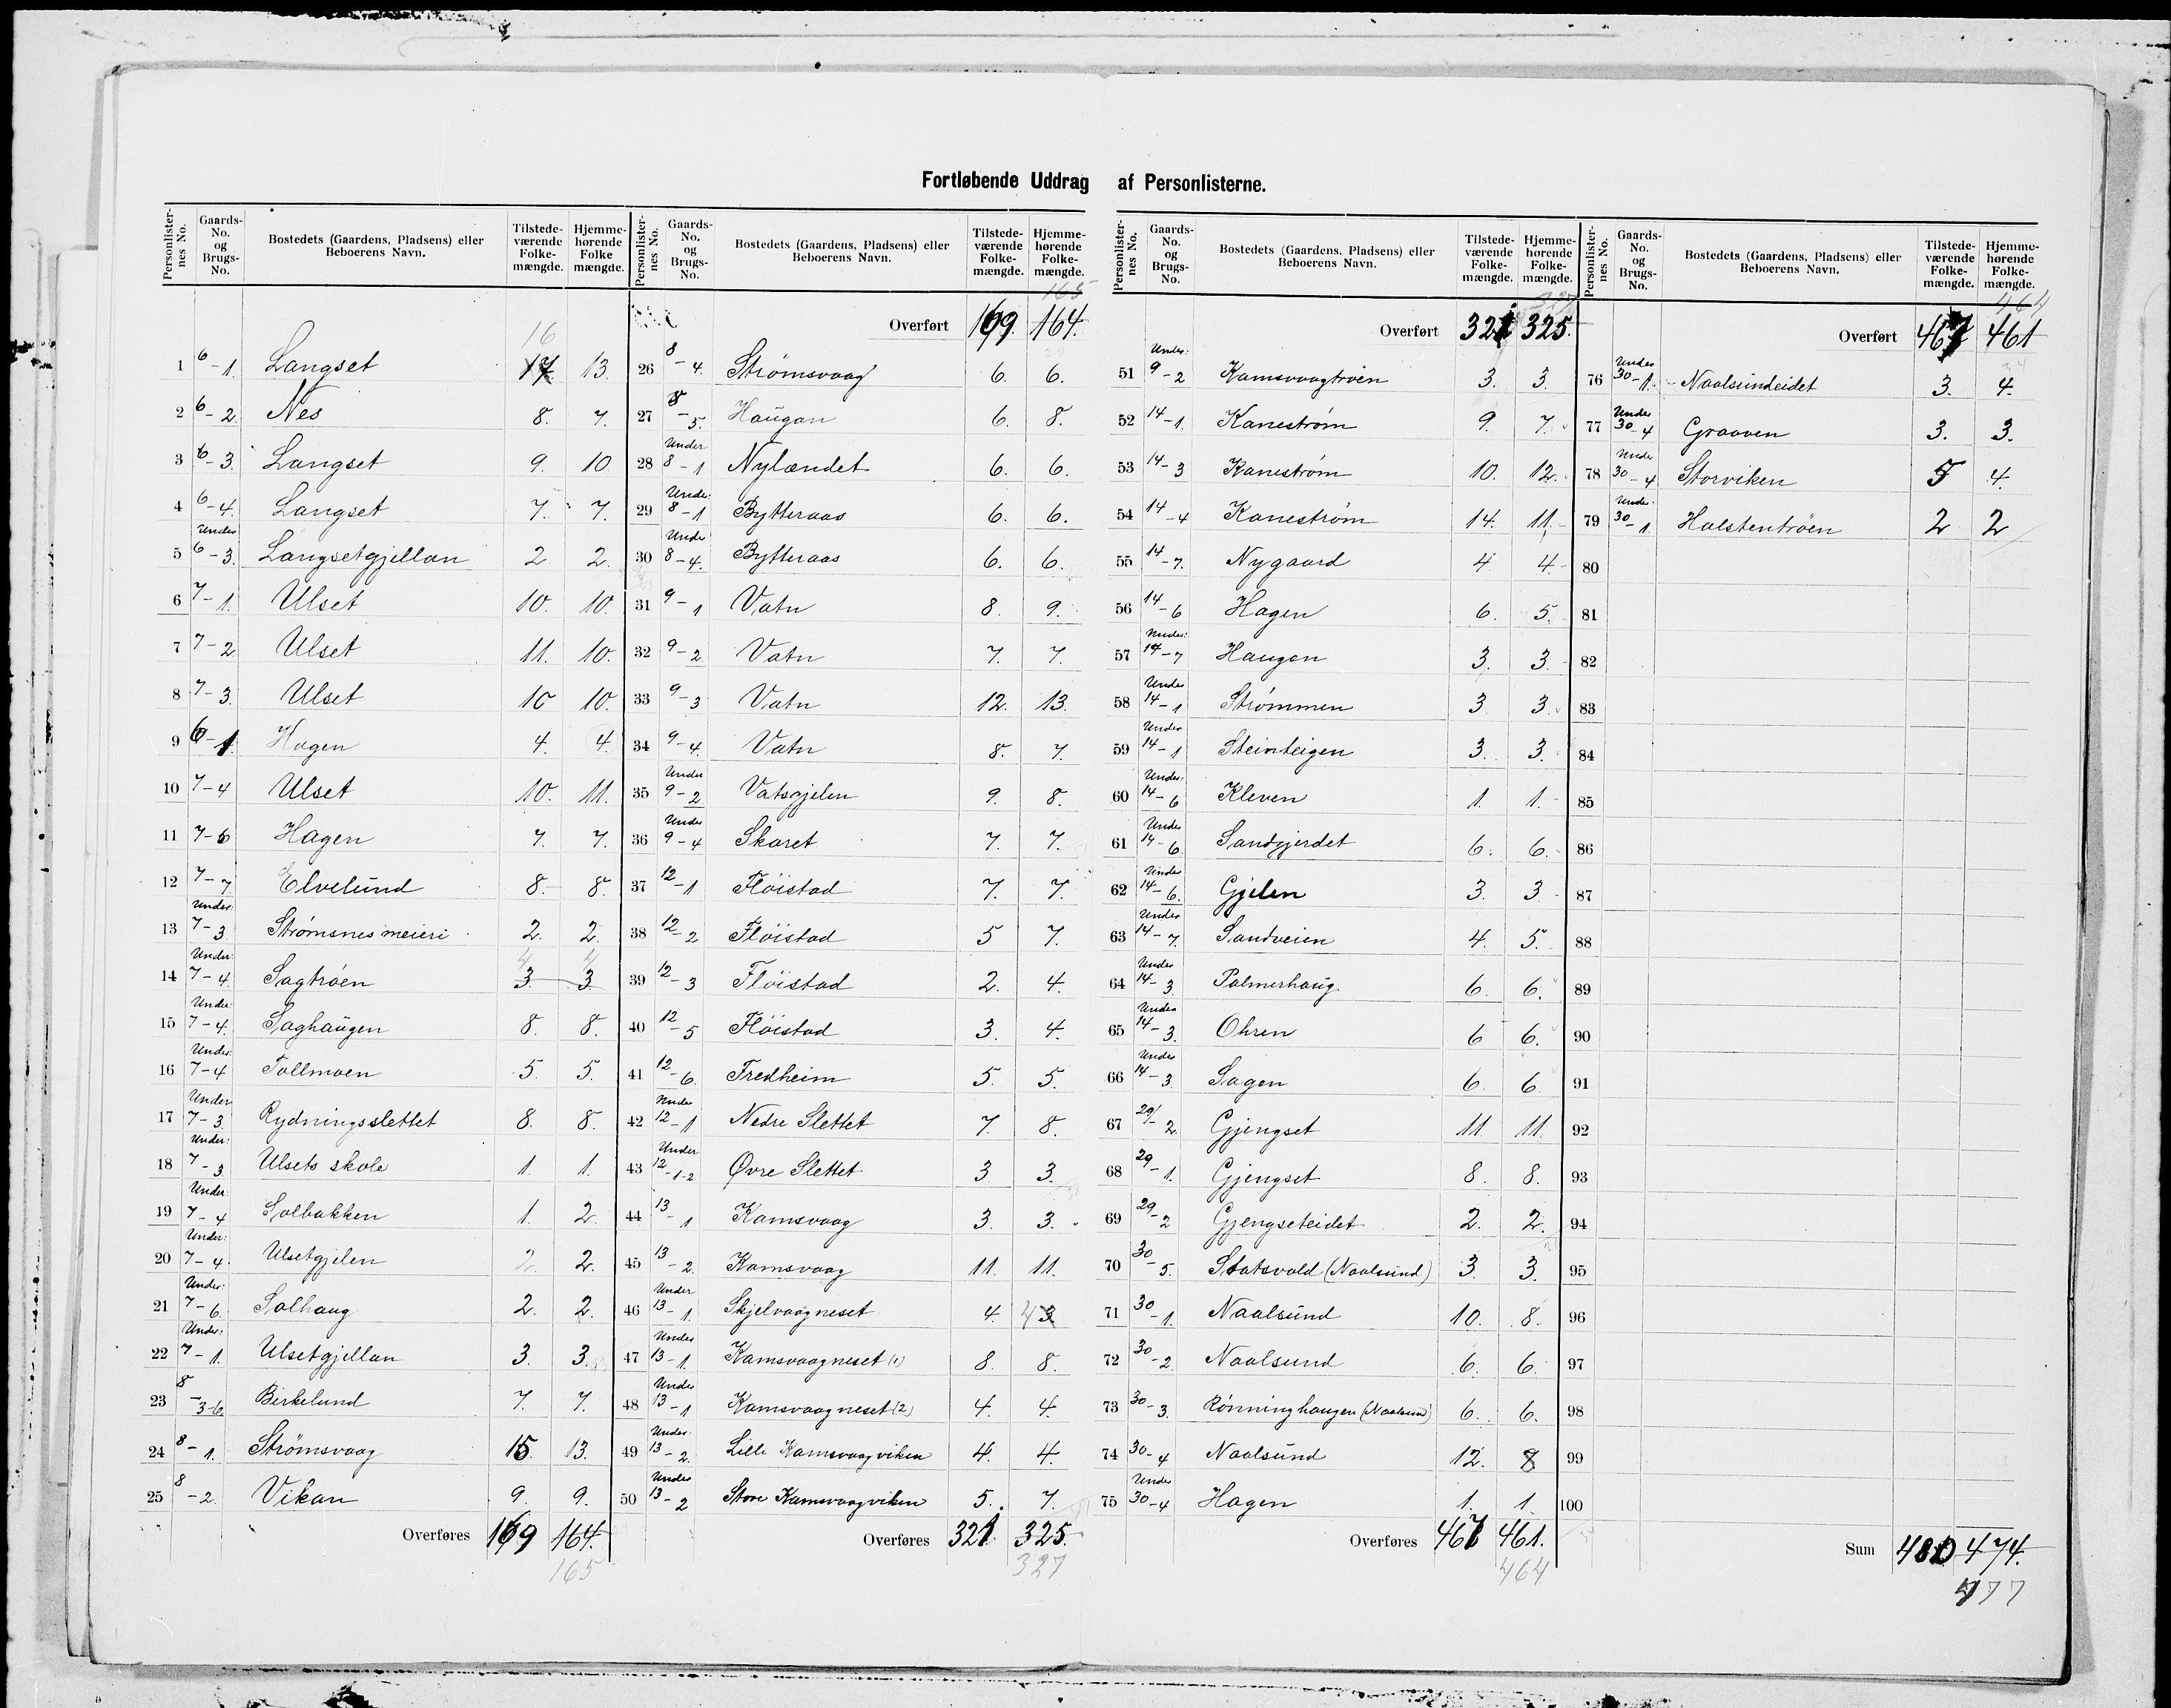 Fortløbende Uddrag af Personlisterne.
Personlisternes No. Gaards-No. og Brugs-No. Bostedets (Gaardens, Pladsens) eller Beboerens Navn. Tilstedeværende Folkemængde. Hjemmehørende Folkemængde.
16
1 6-1. Langset 17 13.
2 6-2 Nes 8. 7.
3 6-3. Langset 9. 10
4 6-4. Langset 7. 7.
5 Under 6-3. Langsetgjellan 2 2.
6 7-1. Ulset 10. 10.
7 7-2 Ulset 11. 10.
8 7-3. Ulset 10 10.
9 6-1. Hagen 4. 4.
10 7-4 Ulset 10. 11.
11 7-6 Hagen 7. 7.
12 7-7. Elvelund 8. 8.
13 Under: 7-3 Strømsnes meieri 2. 2.
4 4
14 Under: 7-4. Sagtrøen 3 3
15 Under: 7-4. Saghaugen 8. 8.
16 Under: 7-4 Tollmoen 5. 5.
17 Under 7-3. Rydningsslettet 8. 8.
18 Under: 7-3 Ulsets skole 1. 1.
19 Under: 7-4 Solbakken 1. 2.
20 Under: 7-4. Ulsetgjelen 2. 2.
21 Under: 7-6. Solhaug 2. 2.
22 Under: 7-1. Ulsetgjellan 3. 3.
23 8-3-6. Birkelund 7. 7.
24 8-1. Strømsvaag 15. 13.
25 8-2. Vikan 9. 9.
Overføres 169 164.
165
165
Overført 169. 164.
26 8-4. Strømsvaag 6. 6.
27 8-5. Haugan 6. 8.
28 Under 8-1 Nylændet 6. 6.
29 Under: 8-1 Bytteraas 6. 6.
30 Under 8-4. Bytteraas 6. 6.
31 9-1 Vatn 8. 9.
32 9-2 Vatn 7. 7.
33 9-3 Vatn 12. 13.
34 9-4. Vatn 8. 7.
35 Under 9-2 Vatsgjelen 9. 8.
36 Under 9-4 Skaret 7. 7.
37 12-1 Fløistad 7. 7.
38 12-2 Fløistad 5 7.
39 12-3 Fløistad 2. 4.
40 12-5 Fløistad 3. 4.
41 12-6. Fredheim 5. 5.
42 Under 12-1 Nedre Slettet 7. 8.
43 Under 12-1-2 Øvre Slettet 3 3.
44 13-1 Kamsvaag 3. 3.
45 13-2. Kamsvaag 11. 11.
46 Under 13-1. Skjelvaagneset 4. 4 3
47 Under 13-1. Kamsvaagneset (1) 8. 8.
48 Under 13-1 Kamsvaagneset (2) 4. 4.
49 Under: 13-2. Lille Kamsvaagviken 4. 4.
50 Under 13-2 Store Kamsvaagviken 5. 7.
Overføres 321. 325.
327
327
Overført 321 325.
51 Under: 9-2 Kamsvaagtrøen 3. 3.
52 14-1. Kanestrøm 9. 7.
53 14-3 Kanestrøm 10. 12.
54 14-4 Kanestrøm 14. 11.
55 14-7. Nygaard 4 4.
56 14-6 Hagen 6. 5.
57 Under: 14-7 Haugen 3. 3.
58 Under 14-1 Strømmen 3. 3.
59 Under 14-1 Steinteigen 3. 3.
60 Under: 14-6 Kleven 1. 1.
61 Under 14-6. Sandgjerdet 6. 6.
62 Under 14-6. Gjelen 3. 3
63 Under 14-7. Sandveien 4. 5.
64 Under 14-3. Palmerhaug 6. 6.
65 Under 14-3. Ohren 6 6.
66 Under 14-3 Sagen 6. 6.
67 29-2. Gjengset 11 11.
68 29-1. Gjengset 8. 8.
69 29-2 Gjengseteidet 2. 2.
70 30-5. Statsvald (Naalsund) 3. 3.
71 30-1. Naalsund 10. 8.
72 30-2. Naalsund 6. 6.
73 30-3. Rønninghaugen (Naalsund) 6. 6.
74 30-4 Naalsund 12. 8
75 Under 30-4 Hagen 1. 1.
Overføres 467 461.
464
464
Overført 467 461
76 Under 30-1. Naalsundeidet 3. 4.
77 Under 30-4 Graaven 3. 3.
78 Under 30-4 Storviken 5 4.
79 Under: 30-1. Halstentrøen 2 2
80
81
82
83
84
85
86
87
88
89
90
91
92
93
94
95
96
97
98
99
100
Sum 480 474.
477